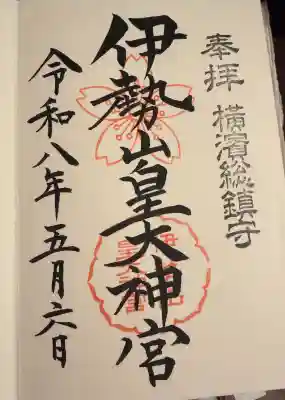 奉拝 横濱総鎮守
伊勢山皇大神宮
令和八年五月六日